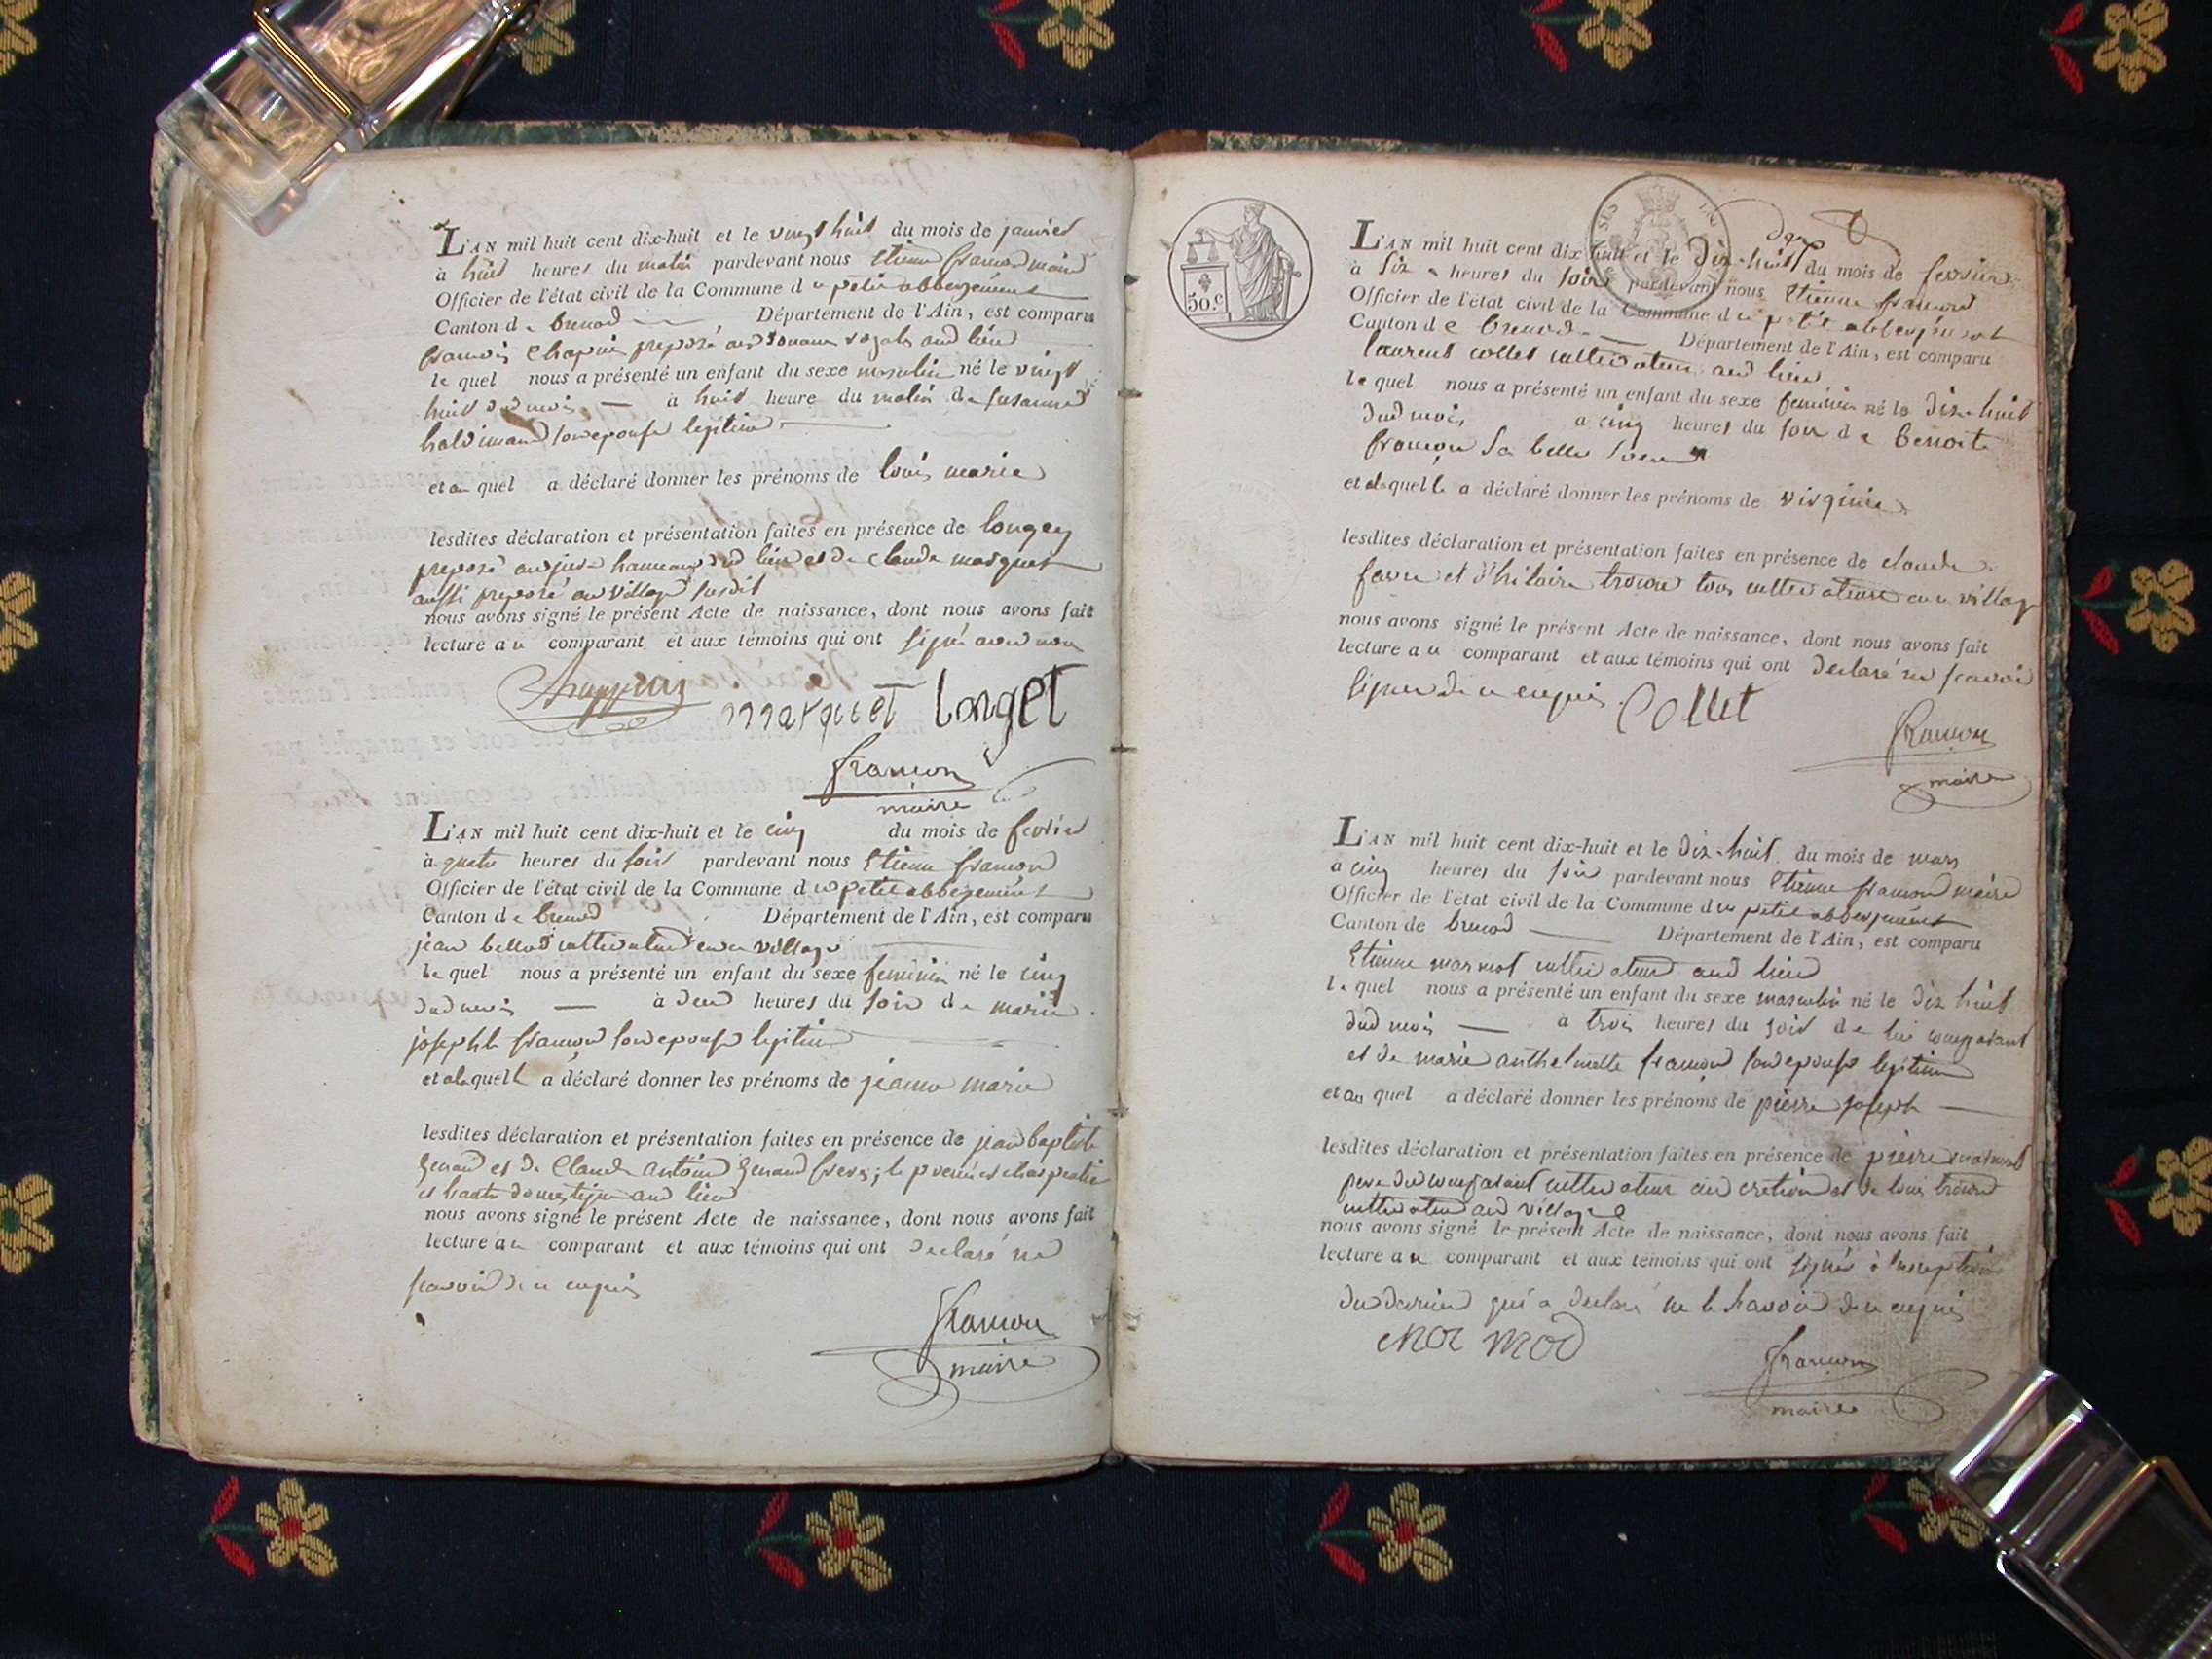 L'AN mil huit cent dix-huit et le vingt huit du mois de janvier
à huit heures du matin pardevant nous Etienne françon maire
Officier de l'état civil de la Commune du petit abbergement
Canton de brenod Département de l'Ain, est comparu
françois Chapuis preposé aux douanes royales aud lieu
lequel nous a présenté un enfant du sexe masculin né le vingt
huit dud mois à huit heure du matin de susanne
haldimand son epouse legitime
et au quel a déclaré donner les prénoms de louis marie
lesdites déclaration et présentation faites en présence de longey
preposé hameau dud lieu et de claude marquet
aussi preposé au village susdit
nous avons signé le présent Acte de naissance, dont nous avons fait
lecture au comparant et aux témoins qui ont signé avec nous
Chappuis marquet longet
françon
maire
L'AN mil huit cent dix-huit et le cinq du mois de fevrier
à quatre heures du soir pardevant nous Etienne françon
Officier de l'état civil de la Commune du petit abbergement
Canton de brenod Département de l'Ain, est comparu
jean bellod cultivateur en ce village
lequel nous a présenté un enfant du sexe feminin né le cinq
dud mois à deux heures du soir de marie
josephte françon son epouse legitime
et alaquelle a déclaré donner les prénoms de jeanne marie
lesdites déclaration et présentation faites en présence de jean baptiste
genand et de Claude antoine genand freres; le premier charpentier
et l'autre domestique aud lieu
nous avons signé le présent Acte de naissance, dont nous avons fait
lecture au comparant et aux témoins qui ont declaré ne
scavoir de ce enquis
françon
maire
50.c
L'AN mil huit cent dix-huit et le dix-huit du mois de fevrier
à six heures du soir pardevant nous Etienne françon
Officier de l'état civil de la Commune du petit abbergement
Canton de brenod Département de l'Ain, est comparu
laurent collet cultivateur aud lieu
lequel nous a présenté un enfant du sexe feminin né le dix-huit
dud mois à cinq heures du soir de benoite
françon sa belle soeur
et alaquelle a déclaré donner les prénoms de virginie
lesdites déclaration et présentation faites en présence de claude
favre et d'hilaire tous cultivateurs en ce village
nous avons signé le présent Acte de naissance, dont nous avons fait
lecture au comparant et aux témoins qui ont declaré ne scavoir
signer de ce enquis Collet
françon
maire
L'AN mil huit cent dix-huit et le dix-huit du mois de mars
à cinq heures du soir pardevant nous Etienne françon maire
Officier de l'état civil de la Commune du petit abbergement
Canton de brenod Département de l'Ain, est comparu
Etienne marmot cultivateur aud lieu
lequel nous a présenté un enfant du sexe masculin né le dix huit
dud mois à trois heures du soir de lui comparant
et de marie anthelmette françon son epouse legitime
et au quel a déclaré donner les prénoms de pierre joseph
lesdites déclaration et présentation faites en présence de pierre marmot
pere du comparant cultivateur et de louis
cultivateur aud village
nous avons signé le présent Acte de naissance, dont nous avons fait
lecture au comparant et aux témoins qui ont signés à l'exception
du dernier qui a declaré ne le scavoir de ce enquis
françon
maire